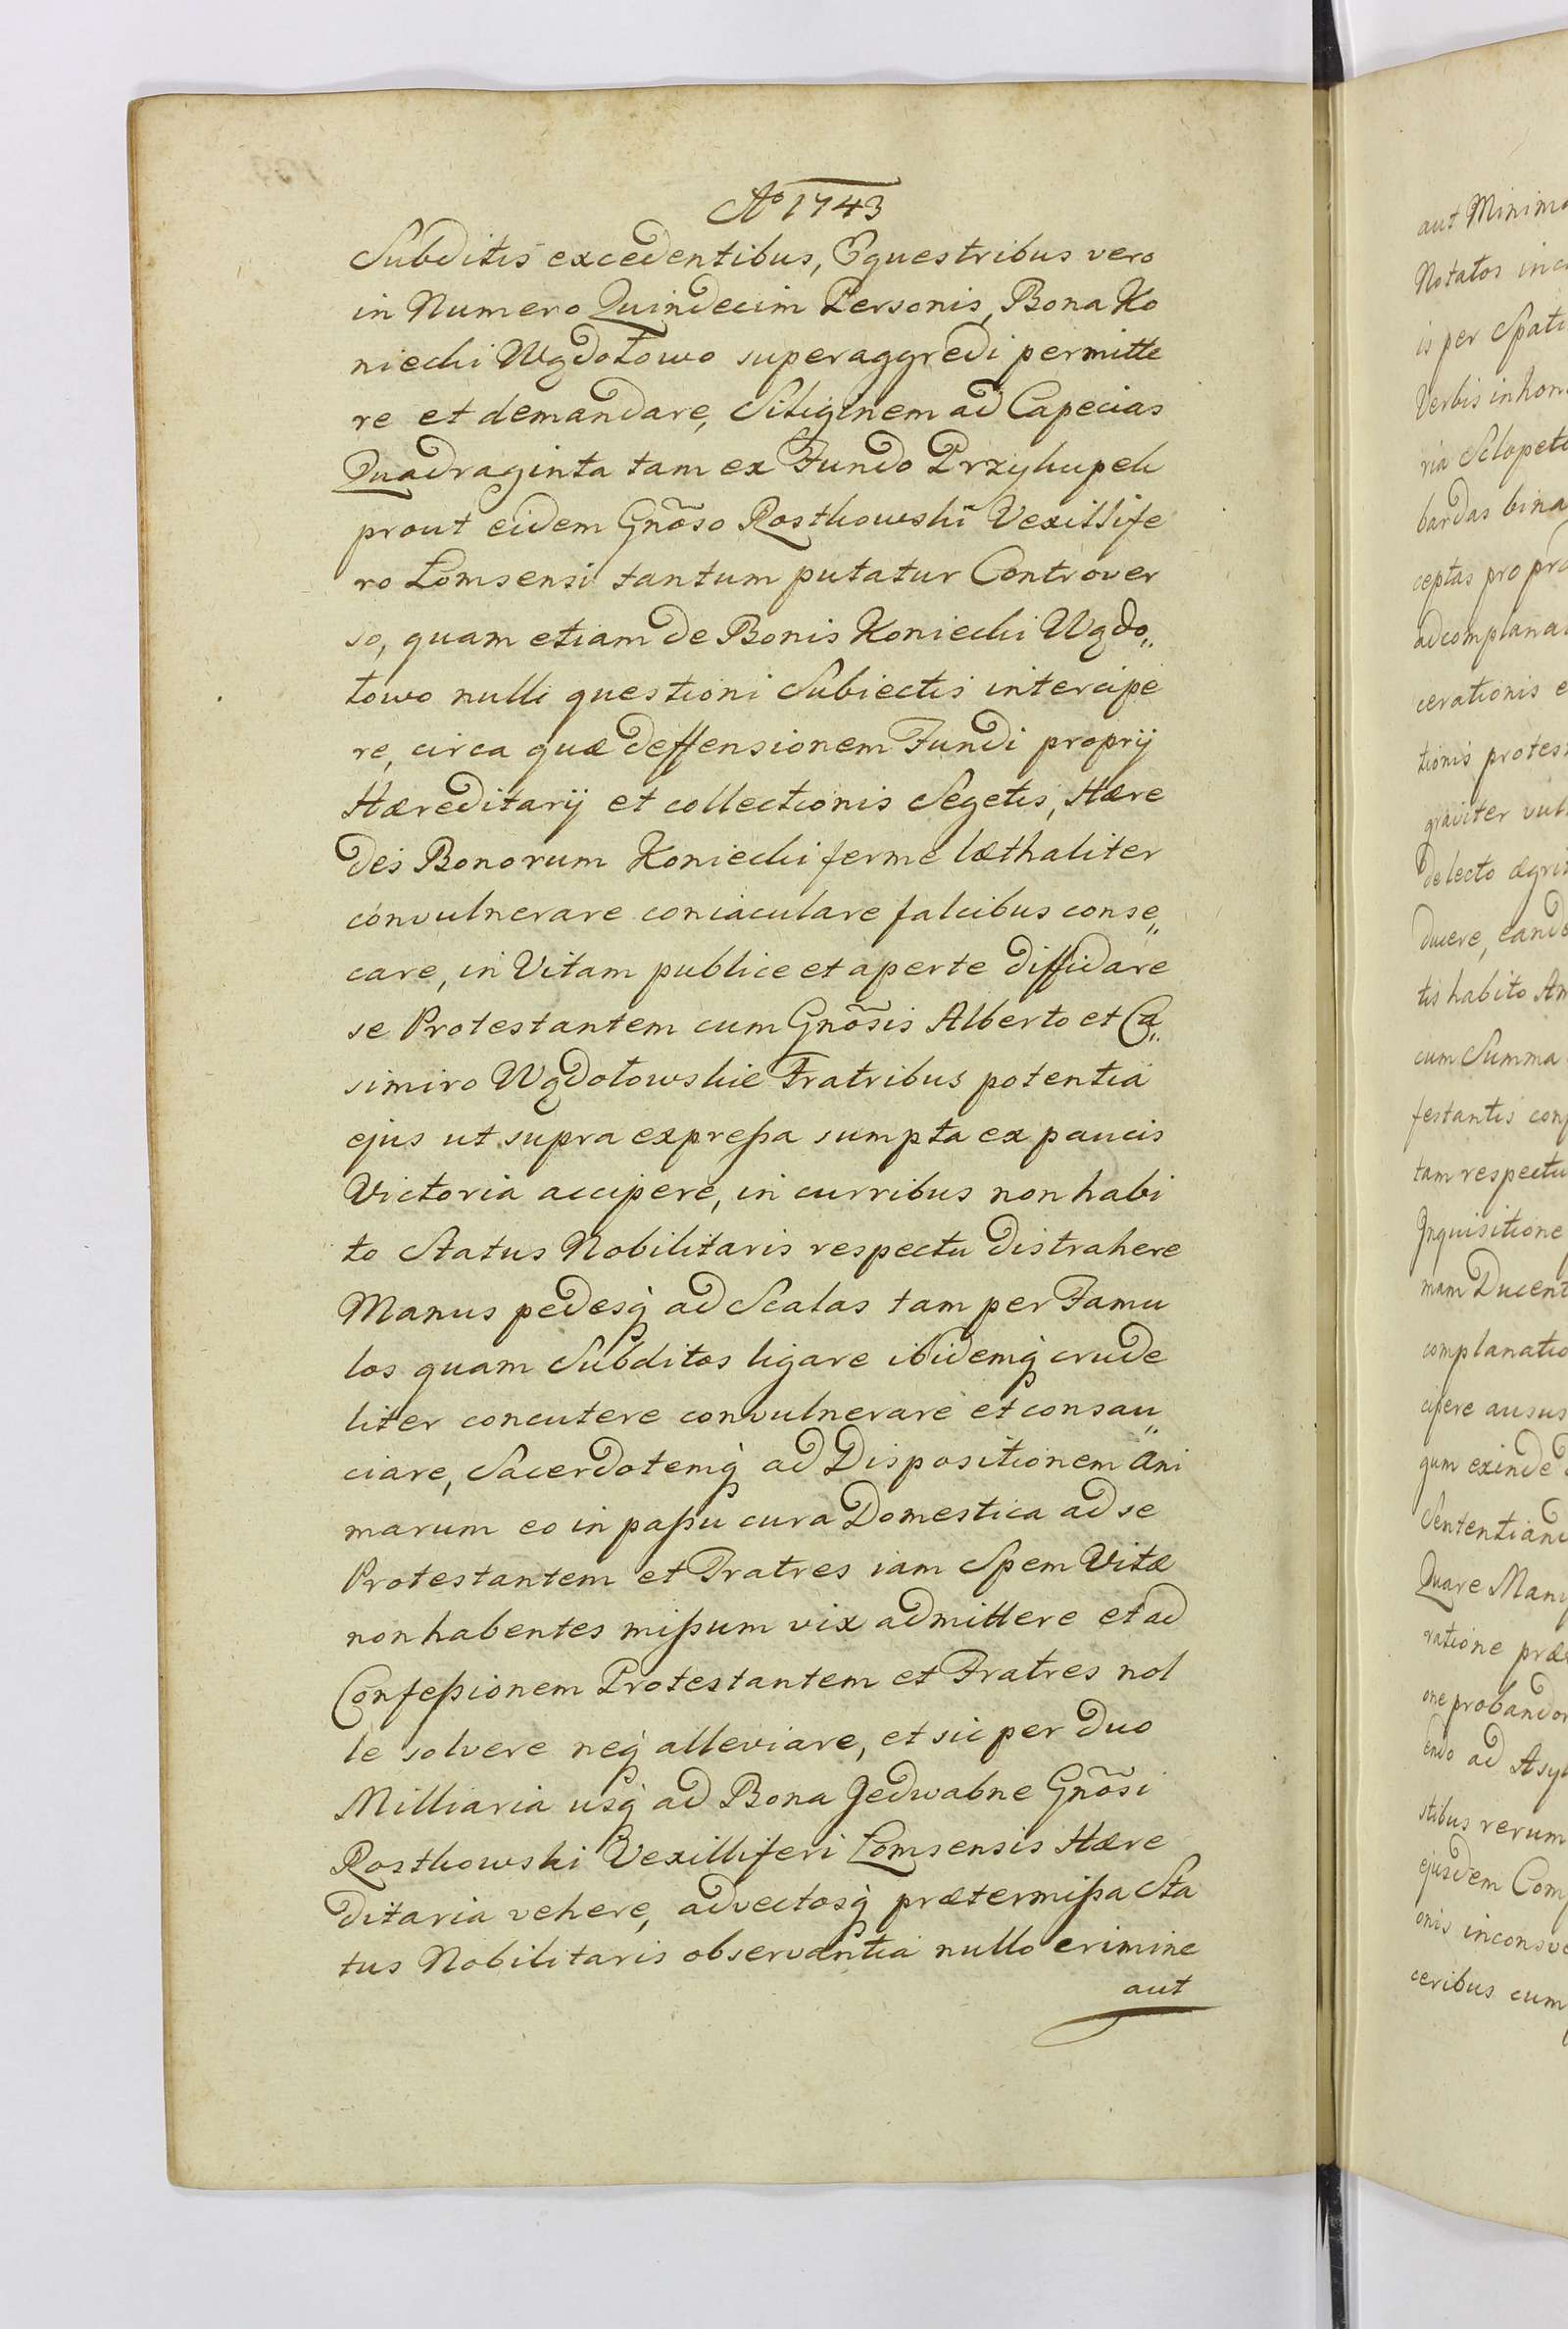 Aº 1743
Subditis excedentibus, Equestribus vero
in Numero Quindecim Personis, Bona Ko
niecki Wądołowo superaggredi permitte
re et demandare, Siliginem ad Capecias
Quadraginta tam ex Fundo Przykupek
prout eidem Gnõso Rostkowski Vexillife
ro Lomsensi tantum putatur Controver
so, quam etiam de Bonis Koniecki Wądo„
łowo nulli questioni Subiectis intercipe
re, circa quæ deffensionem Fundi proprij
Hæreditarij et collectionis Segetis, Hære
des Bonorum Koniecki ferme læthaliter
convulnerare coniaculare falcibus conse„
care, in Vitam publice et aperte diffidare
se Protestantem cum Gnõsis Alberto et Ca„
simiro Wądołowskie Fratribus potentia
ejus ut supra expreßa sumpta ex paucis
Victoria accipere, in curribus non habi
to Status Nobilitaris respectu distrahere
Manus pedesq; ad Scalas tam per Famu
los quam Subditos ligare ibidemq; crude
liter concutere convulnerare et consau„
ciare, Sacerdotemq; ad Dispositionem Ani
marum eo in paßu cura Domestica ad se
Protestantem et Fratres iam Spem Vitæ
non habentes mißum vix admittere et ad
Confeßionem Protestantem et Fratres nol
le solvere neq; alleviare, et sic per duo
Milliaria usq; ad Bona Jedwabne Gnõsi
Rostkowski Vexilliferi Lomsensis Hære
ditaria vehere, advectosq; prætermißa Sta
tus Nobilitaris observantia nullo crimine
aut
aut Minim
Notatos in
is per Spati
Verbis inhon
ria Sclopet
bardas bina
ceptas pro pr
ad complana
cerationis e
tionis protes
graviter vul
de lecto ægri
ducere, eand
tis habito Am
cum Summa
festantis con
tam respectu
Inquisitione
mam Ducent
complanatio
cipere ausus
gum exinde
Sententiand
Quare Mani
ratione præ
one probandor
endo ad Asyl
stibus rerum
ejusdem Com
onis inconsve
ceribus cum